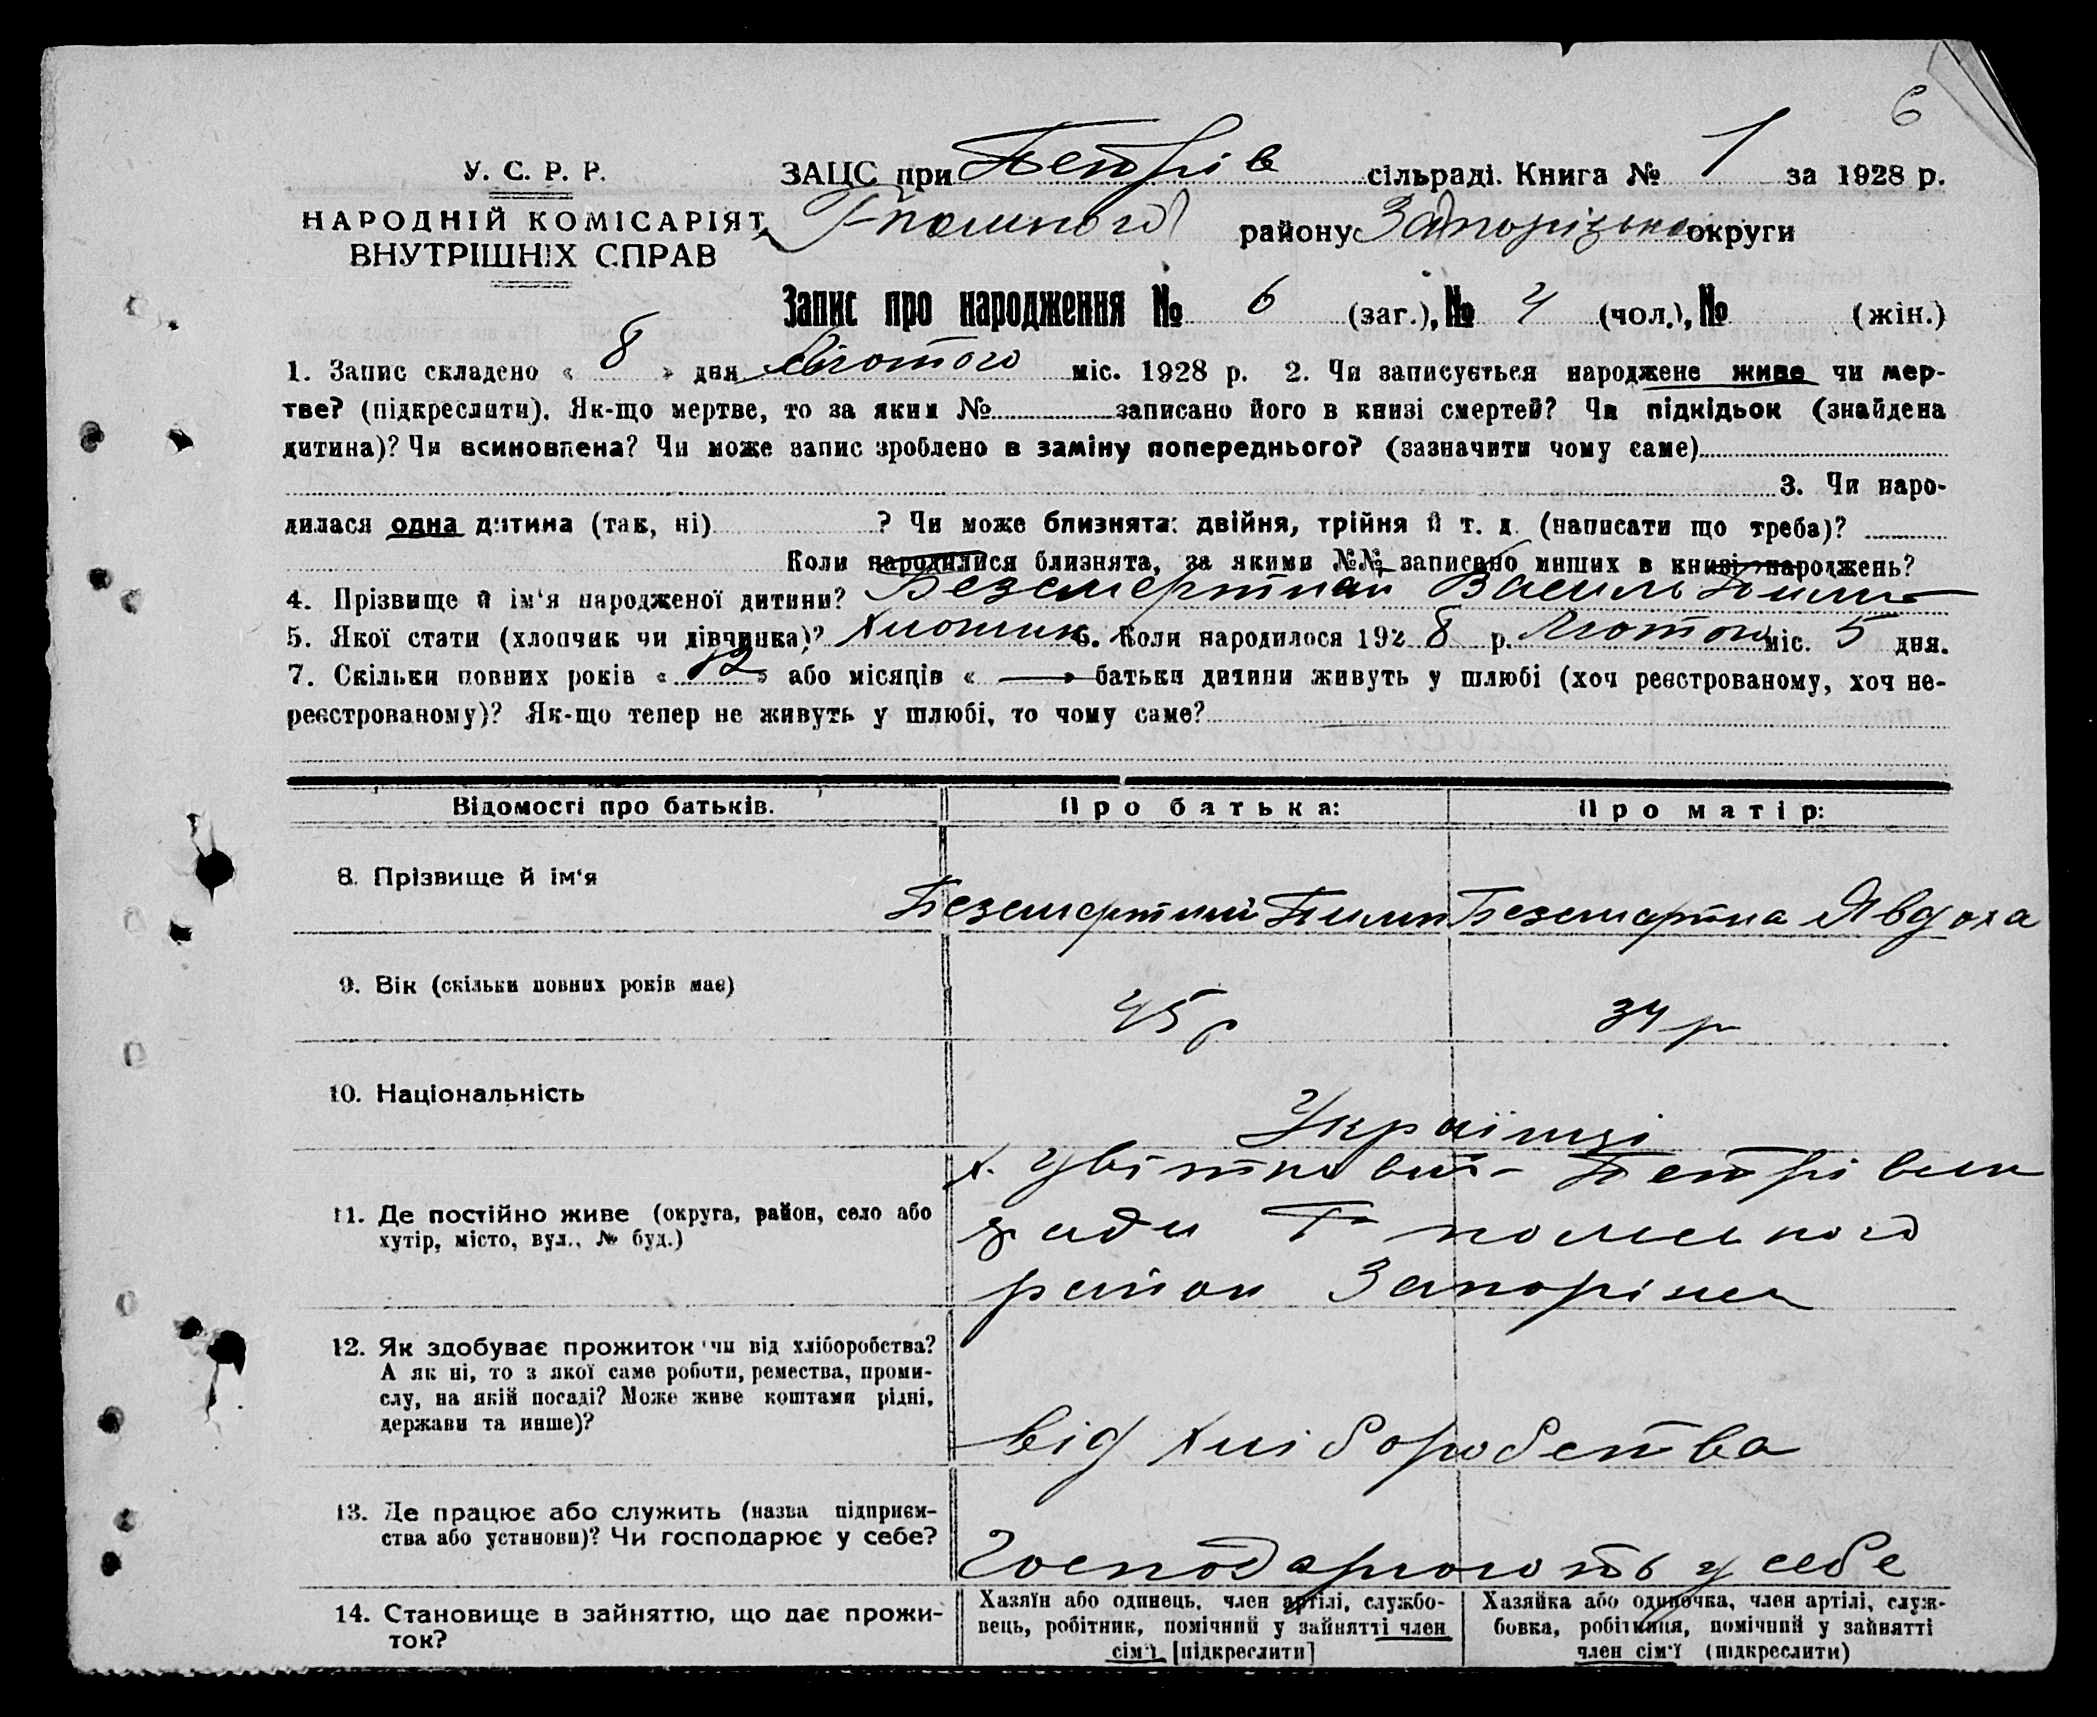 6
У. С. Р. Р.
НАРОДНІЙ КОМІСАРІЯТ
ВНУТРІШНІХ СПРАВ
ЗАЦС при Петрів сільраді. Книга № 1 за 1928 р.
району Запорізької округи
Запис про народження № 6 (заг.), № 4 (чол.), № (жін.)
1. Запис складено « 8 » дня Лютого міс. 1928 р. 2. Чи записується народжене живе чи мер-
тве? (підкреслити). Як-що мертве, то за яким № записано його в книзі смертей? Чи підкідьок (знайдена
дитина)? Чи всиновлена? Чи може запис зроблено в заміну попереднього? (зазначити чому саме)
3. Чи наро-
дилася одна дитина (так, ні) ? Чи може близнята: двійня, трійня й т. д. (написати що треба)?
Коли народилися близнята, за якими №№ записано инших в книзі народжень?
4. Прізвище й ім'я народженої дитини? Безсмертний Василь
5. Якої стати (хлопчик чи дівчинка)? Хлопчик 6. Коли народилося 1928 р. Лютого міс. 5 дня.
7. Скільки повних років « 12 » або місяців « — » батьки дитини живуть у шлюбі (хоч реєстрованому, хоч не-
реєстрованому)? Як-що тепер не живуть у шлюбі, то чому саме?
Відомості про батьків. Про батька: Про матір:
8. Прізвище й ім'я Безсмертний Пилип Безсмертна Явдоха
9. Вік (скільки повних років має) 45 р 34 р
10. Національність Українці
11. Де постійно живе (округа, район, село або
хутір, місто, вул., № буд.)
х. Петрівськ
ради Г польського
район Запоріжа
12. Як здобуває прожиток чи від хліборобства?
А як ні, то з якої саме роботи, ремества, проми-
слу, на якій посаді? Може живе коштами рідні,
держави та инше)?
від хліборобства
13. Де працює або служить (назва підприєм-
ства або установи)? Чи господарює у себе?
Господарюють у себе
14. Становище в зайняттю, що дає прожи-
ток?
Хазяїн або одинець, член артілі, службо-
вець, робітник, помічний у зайнятті член
сім'ї [підкреслити]
Хазяйка або одиночка, член артілі, служ-
бовка, робітниця, помічний у зайнятті
член сім'ї (підкреслити)